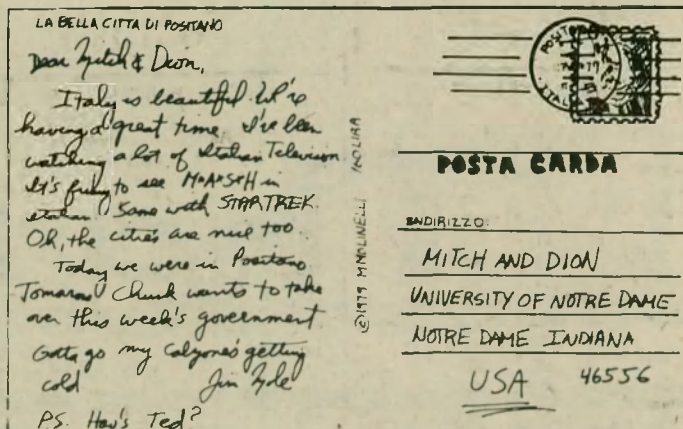 LA BELLA CITTA DI POSITANO
Dear Mitch & Dion,
Italy is beautiful. We're
having a great time. I've been
watching a lot of Italian Television
It's funny to see M*A*S*H in
italian. Same with STAR TREK.
Oh, the cities are nice too.
Today we were in Positano.
Tomarow Chuck wants to take
over this week's government
Gotta go my Calzone's getting
cold Jim
P.S. How's Ted?
©1979 M MOLINELLI
POSITANO
ITALIA
POSTA CARDA
INDIRIZZO:
MITCH AND DION
UNIVERSITY OF NOTRE DAME
NOTRE DAME INDIANA
USA 46556